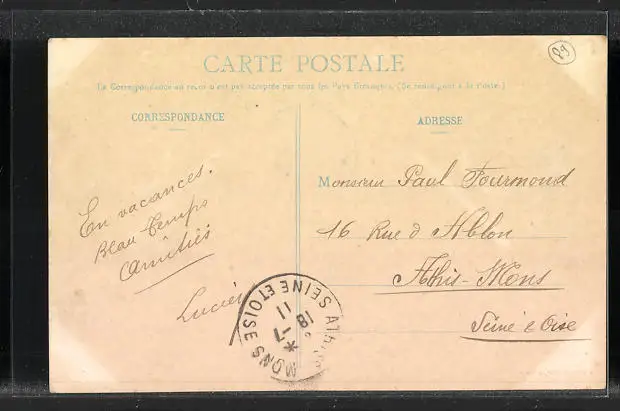 89
CARTE POSTALE
La Correspondance au recto n'est pas acceptée par tous les Pays Etrangers. (Se renseigner à la Poste.)
CORRESPONDANCE
ADRESSE
En vacances.
Beau temps
Amitiés
Lucien
Monsieur Paul Fourmond
16 Rue d'Ablon
Athis-Mons
Seine & Oise
ATHIS MONS SEINE ET OISE
18 -7
11